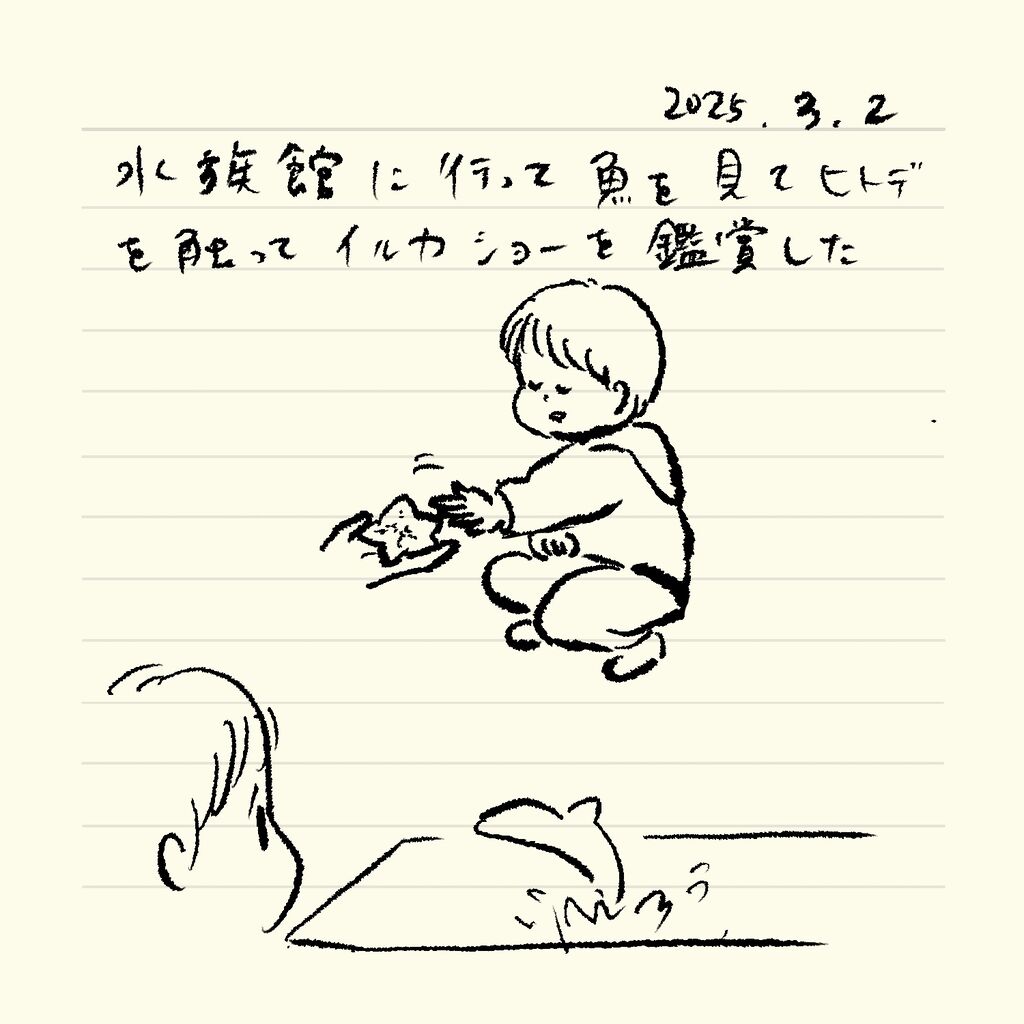 2025.3.2
水族館に行って魚を見てヒトデ
を触ってイルカショーを鑑賞した